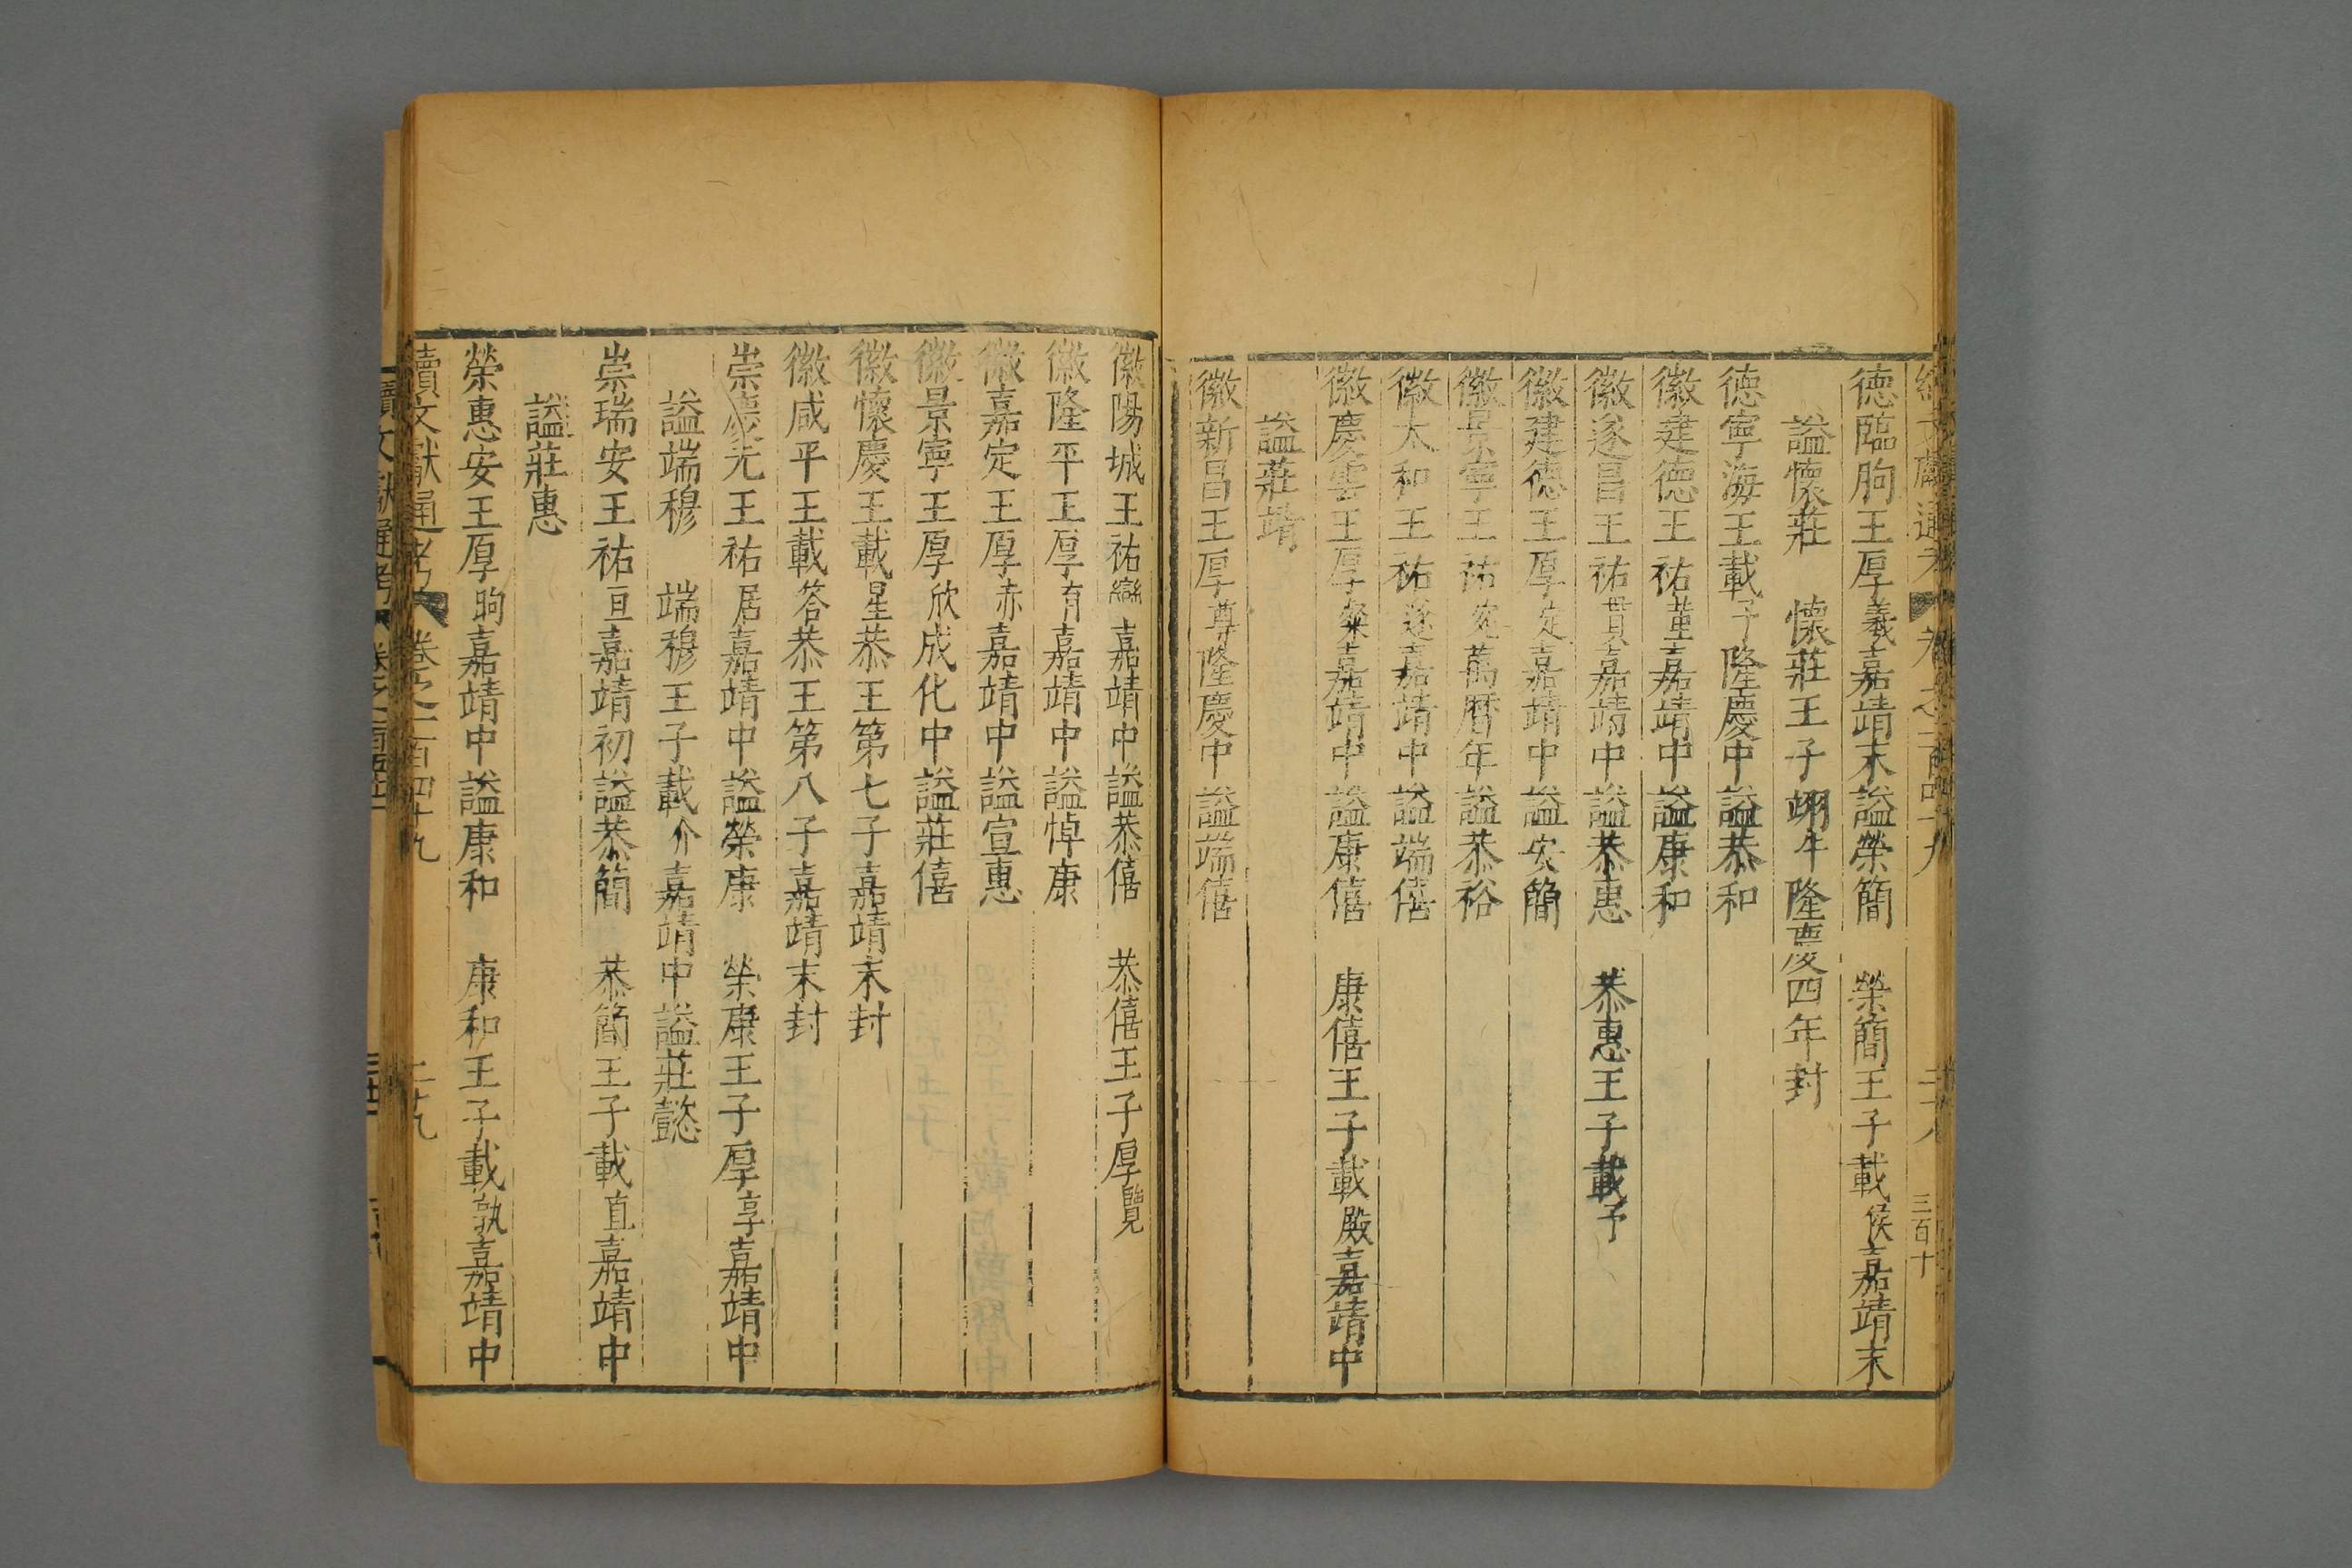 續文獻通考 卷之二百四十九 三百十
德臨朐王厚羲嘉靖末謚榮簡 榮簡王子載侯嘉靖末
謚懷莊 懷莊王子翊 隆慶四年封
德寧海王載子隆慶中謚恭和
徽建德王祐董嘉靖中謚康和
徽遂昌王祐貫嘉靖中謚恭惠 恭惠王子載予
徽建德王厚定嘉靖中謚安簡
徽景寧王祐 萬曆年謚恭裕
徽太和王祐 嘉靖中謚端僖
徽慶雲王厚 嘉靖中謚康僖 康僖王子載殿嘉靖中
謚莊靖
徽新昌王厚尊隆慶中謚端僖
徽陽城王祐 嘉靖中謚恭僖 恭僖王子厚覽
徽隆平王厚 嘉靖中謚悼康
徽嘉定王厚赤嘉靖中謚宣惠
徽景寧王厚欣成化中謚莊僖
徽懷慶王載星恭王第七子嘉靖末封
徽咸平王載答恭王第八子嘉靖末封
崇德 王祐居嘉靖中謚榮康 榮康王子厚享嘉靖中
謚端穆 端穆王子載介嘉靖中謚莊懿
崇瑞安王祐亘嘉靖初謚恭簡 恭簡王子載直嘉靖中
謚莊惠
榮惠安王厚昫嘉靖中謚康和 康和王子載孰嘉靖中
續文獻通考 卷之二百四十九 二十九
續文獻通考